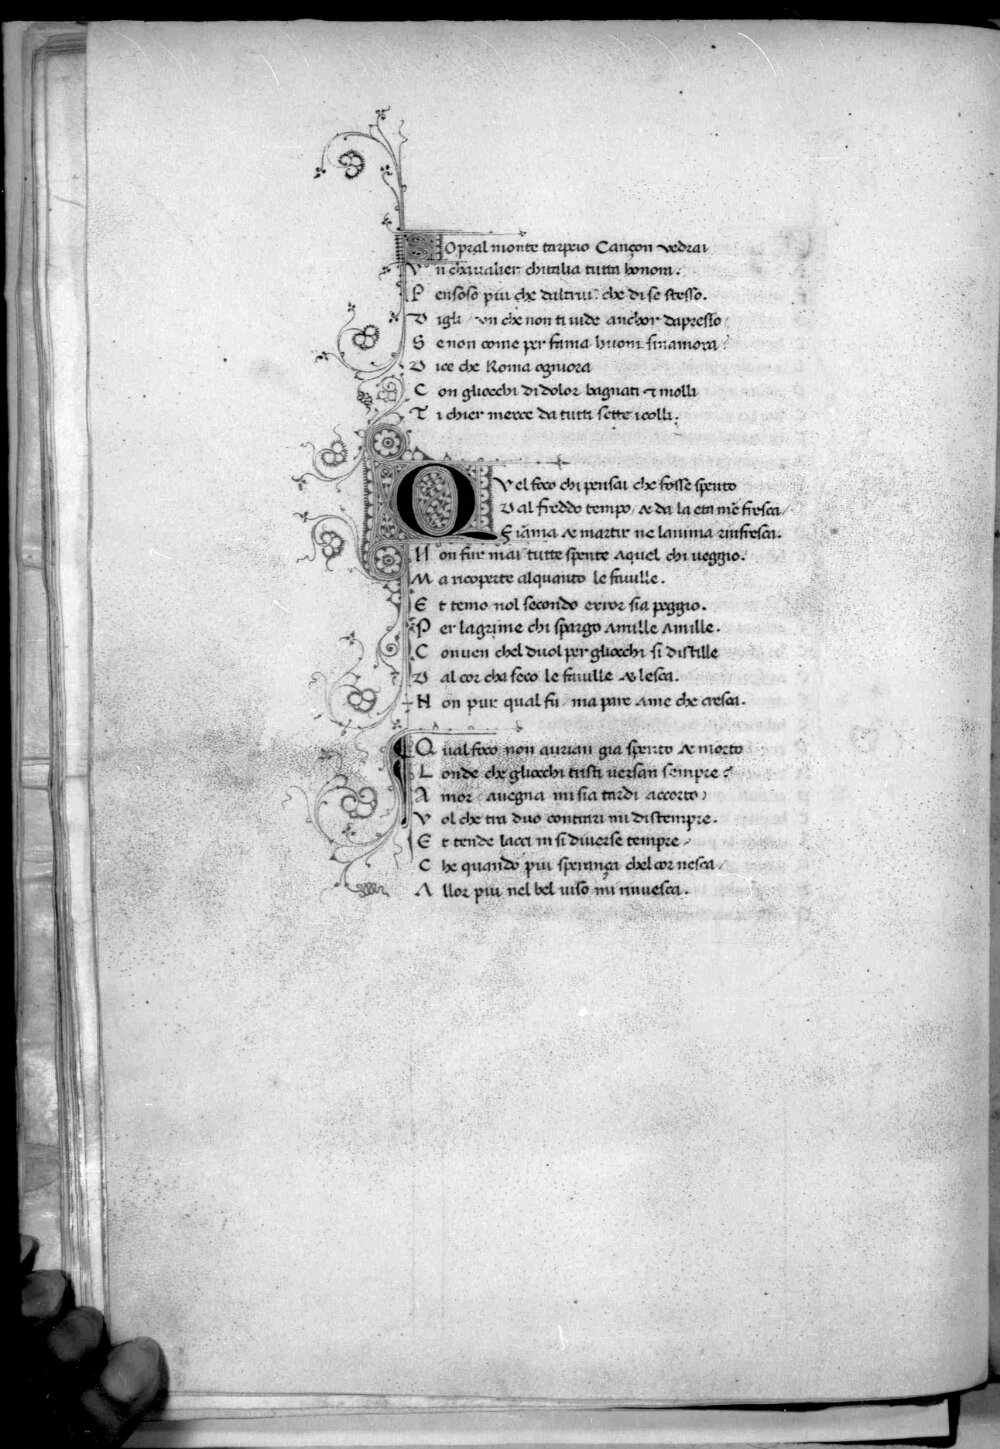 Sopral monte tarpeio Cançon vedrai
Vn chavalier chitalia tutta honora.
Pensoso piu che daltrui che di se stesso.
Digli vn che non ti uide anchor dapresso
Se non come per fama huom sinamora
Dice che Roma ogniora
Con gliocchi di dolor bagnati et molli
Ti chier merce da tutti sette icolli.
Quel foco chi pensai che fosse spento
Dal freddo tempo / & da la eta mẽ fresca /
Fiãma & martir ne lanima rinfresca.
Non fur mai tutte spente aquel chi ueggio.
Ma ricoperte alquanto le fauille.
Et temo nol secondo error sia peggio.
Per lagrime chi spargo amille amille.
Conuen chel duol per gliocchi si distille
Dal cor cha seco le fauille & lesca.
Non pur qual fu / ma pare ame che cresca.
Qual foco non aurian gia spento & morto
Londe che gliocchi tristi uersan sempre?
Amor auegna mi sia tardi accorto /
Vol che tra duo contrari mi distempre.
Et tende lacci in si diuerse tempre /
Che quando piu sperança chel cor nesca /
Allor piu nel bel uiso mi rinuesca.